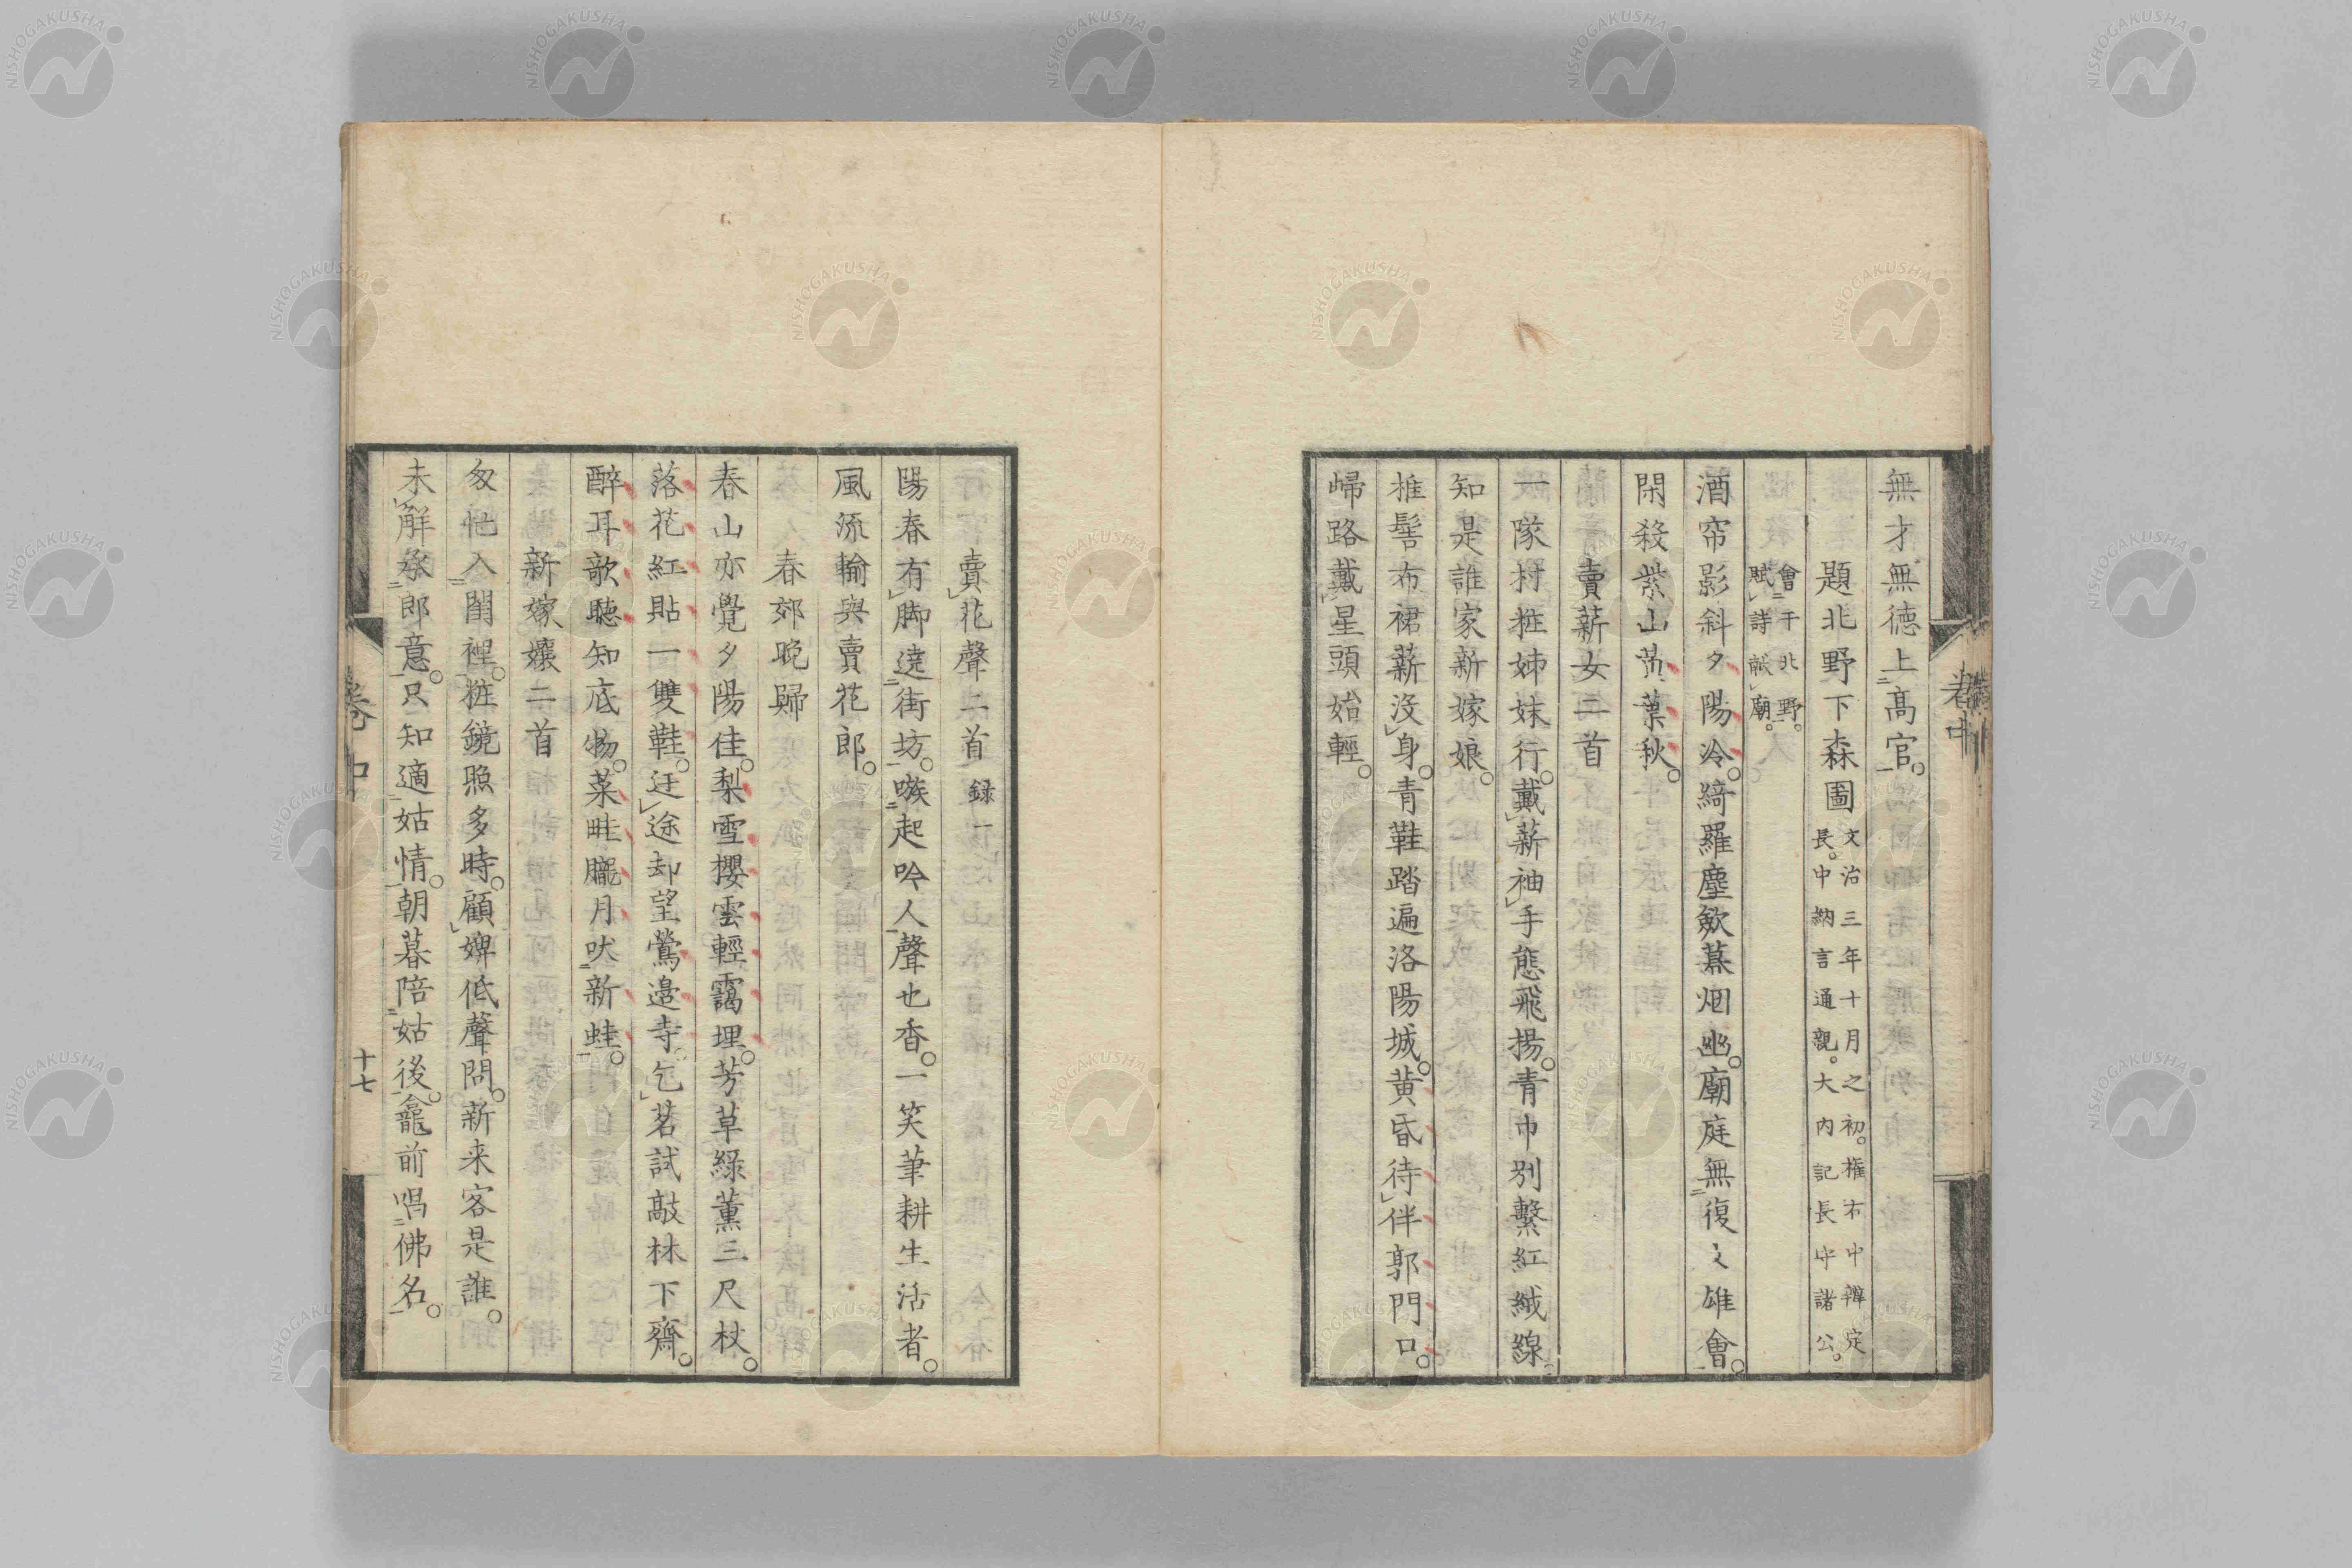 無才無德上高官。
題北野下森圖 文治三年十月之初。權右中辨定
長。中納言通親。大內記長守諸公。
會于北野。
賦詩献廟。
酒帘影斜夕陽冷。綺羅塵歛暮烟幽。廟庭無復文雄會。
閑殺柴山黄葉秋。
賣薪女二首
一隊村粧姊妹行。戴薪袖手態飛揚。青巾別繫紅絨線
知是誰家新嫁娘。
椎髻布裙薪没身。青鞋踏遍洛陽城。黄昏待伴郭門口。
歸路戴星頭始輕。
卷中
賣花聲二首 録一
陽春有脚遶街坊。嗾起吟人聲也香。一笑筆耕生活者。
風流輸與賣花郎。
春郊晩歸
春山亦覺夕陽佳。梨雪櫻雲輕靄埋。芳草綠薰三尺杖。
落花紅貼一雙鞋。迂途却望鶯邉寺。乞茗試敲林下齋。
醉耳歌聽知底物。菜畦朧月吠新蛙。
新嫁孃二首
匆忙入閨裡。粧鏡照多時。顧婢低聲問。新来客是誰。
未解承郎意。只知適姑情。朝暮陪姑後。龕前唱佛名。
卷中
十七
NISHOGAKUSHA